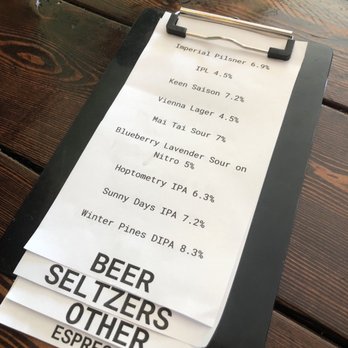 Imperial Pilsner 6.9%
IPL 4.5%
Keen Saison 7.2%
Vienna Lager 4.5%
Mai Tai Sour 7%
Blueberry Lavender Sour on
Nitro 5%
Hoptometry IPA 6.3%
Sunny Days IPA 7.2%
Winter Pines DIPA 8.3%
BEER
SELTZERS
OTHER